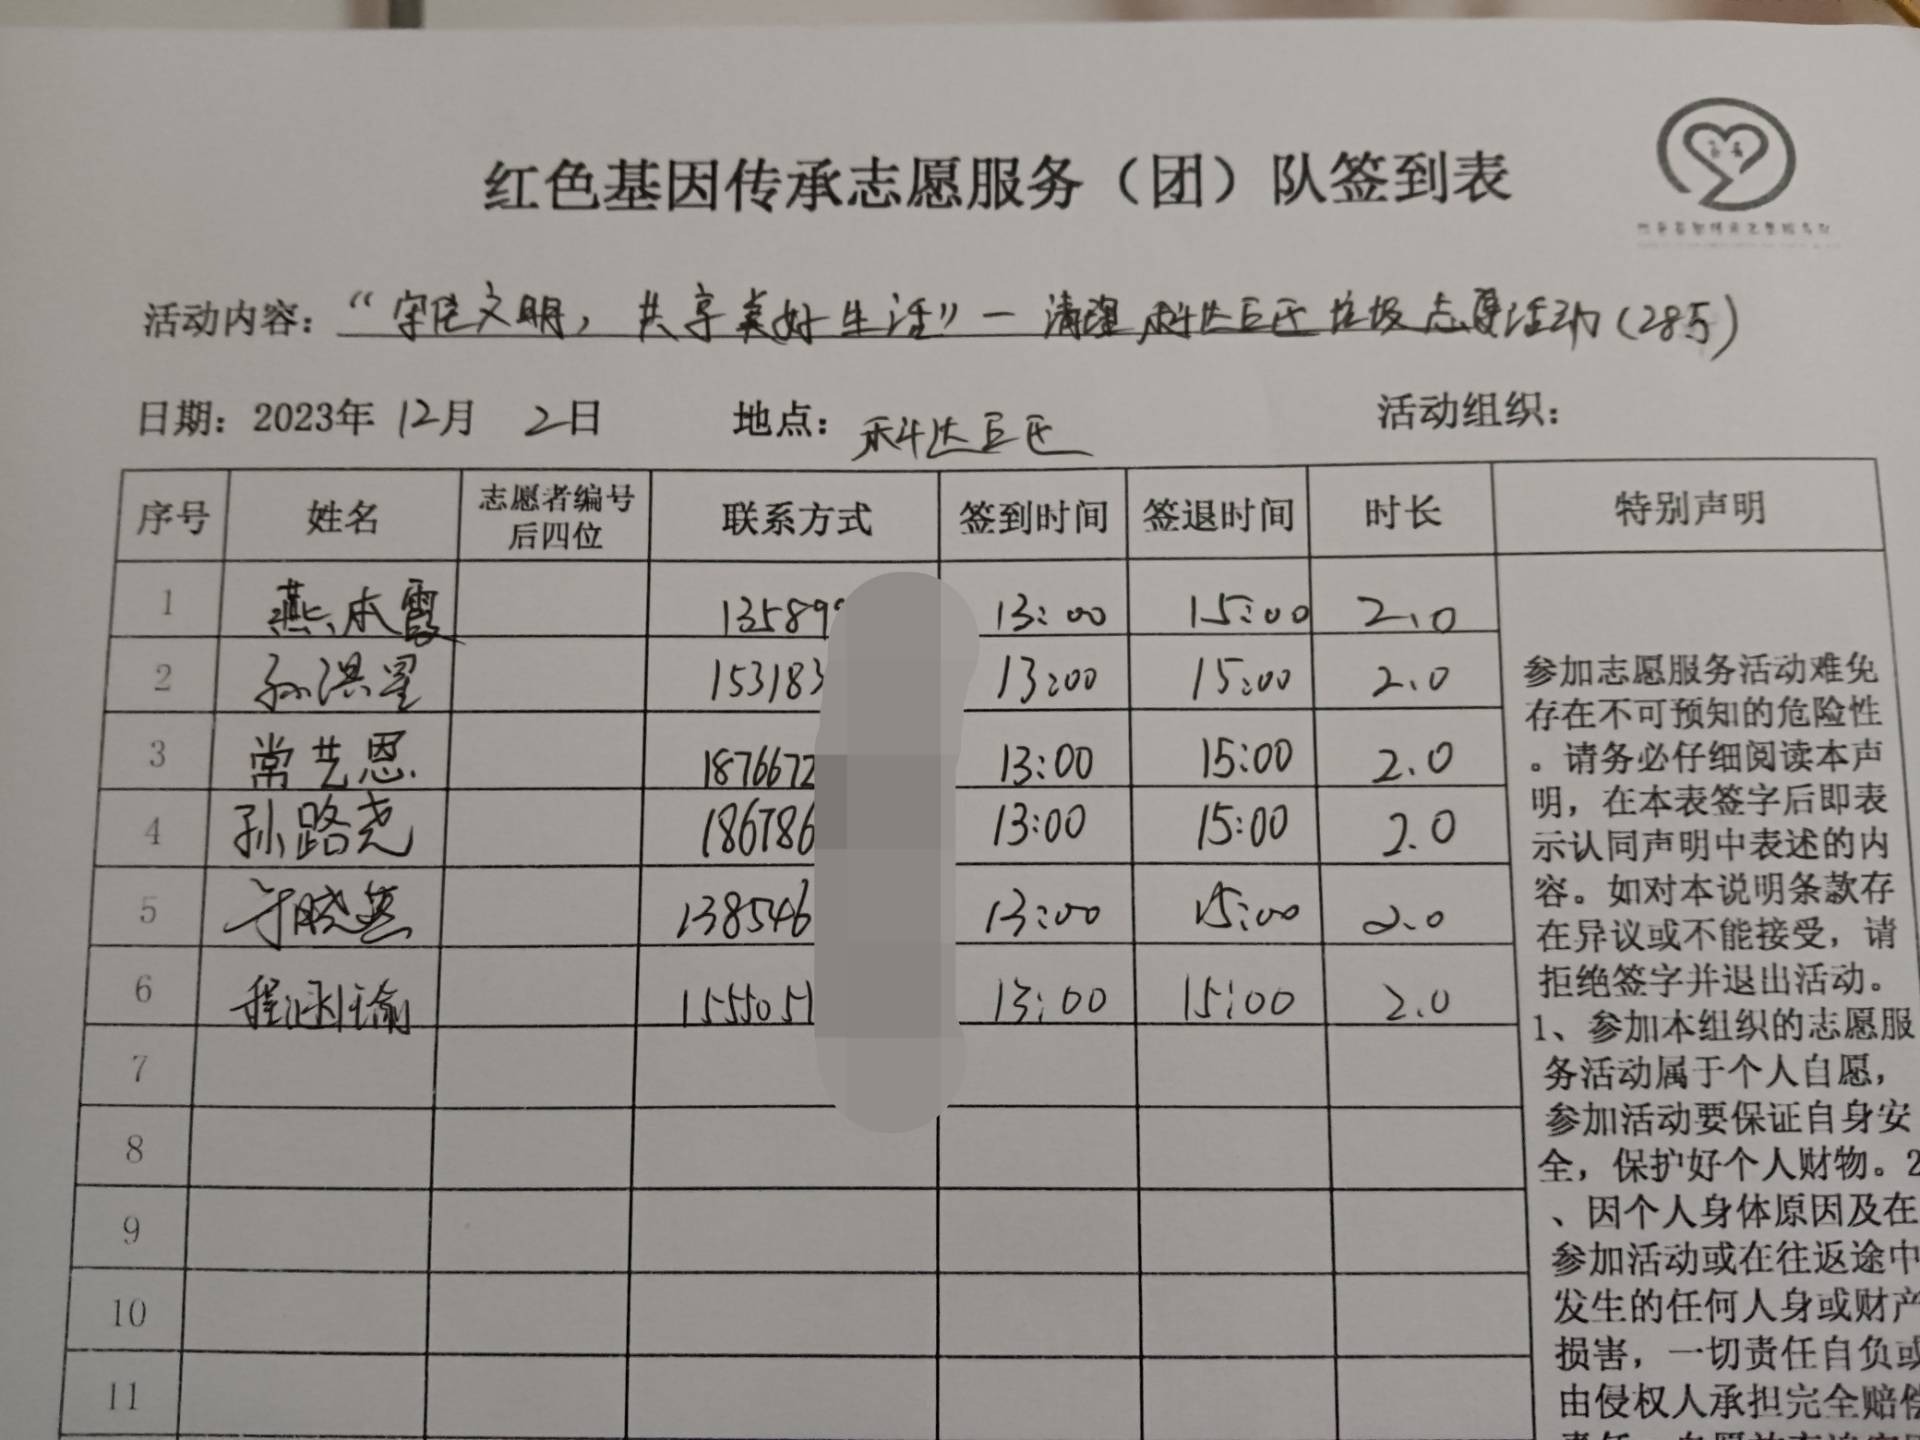 红色基因传承志愿服务（团）队签到表
活动内容：“守住文明，共享美好生活”一清理科达巨匠垃圾志愿活动(28号)
日期：2023年 12月 2日 地点：科达巨匠 活动组织：
序号 姓名 志愿者编号后四位 联系方式 签到时间 签退时间 时长 特别声明
1 燕本霞 13589 13:00 15:00 2.0
2 孙洪星 153183 13:00 15:00 2.0
3 常艺恩 1876672 13:00 15:00 2.0
4 孙路尧 186786 13:00 15:00 2.0
5 于晓燕 138546 13:00 15:00 2.0
6 程涵瑜 1555051 13:00 15:00 2.0
7
8
9
10
11
参加志愿服务活动难免
存在不可预知的危险性
。请务必仔细阅读本声
明，在本表签字后即表
示认同声明中表述的内
容。如对本说明条款存
在异议或不能接受，请
拒绝签字并退出活动。
1、参加本组织的志愿服
务活动属于个人自愿，
参加活动要保证自身安
全，保护好个人财物。2
、因个人身体原因及在
参加活动或在往返途中
发生的任何人身或财产
损害，一切责任自负或
由侵权人承担完全赔偿